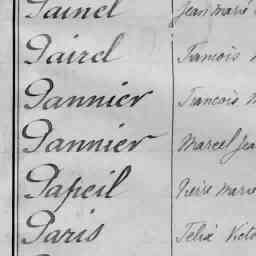 Painel Jean Marie
Pairel François
Pannier François M
Pannier Marcel Jea
Papeil Pierre Marie
Paris Félix Victo